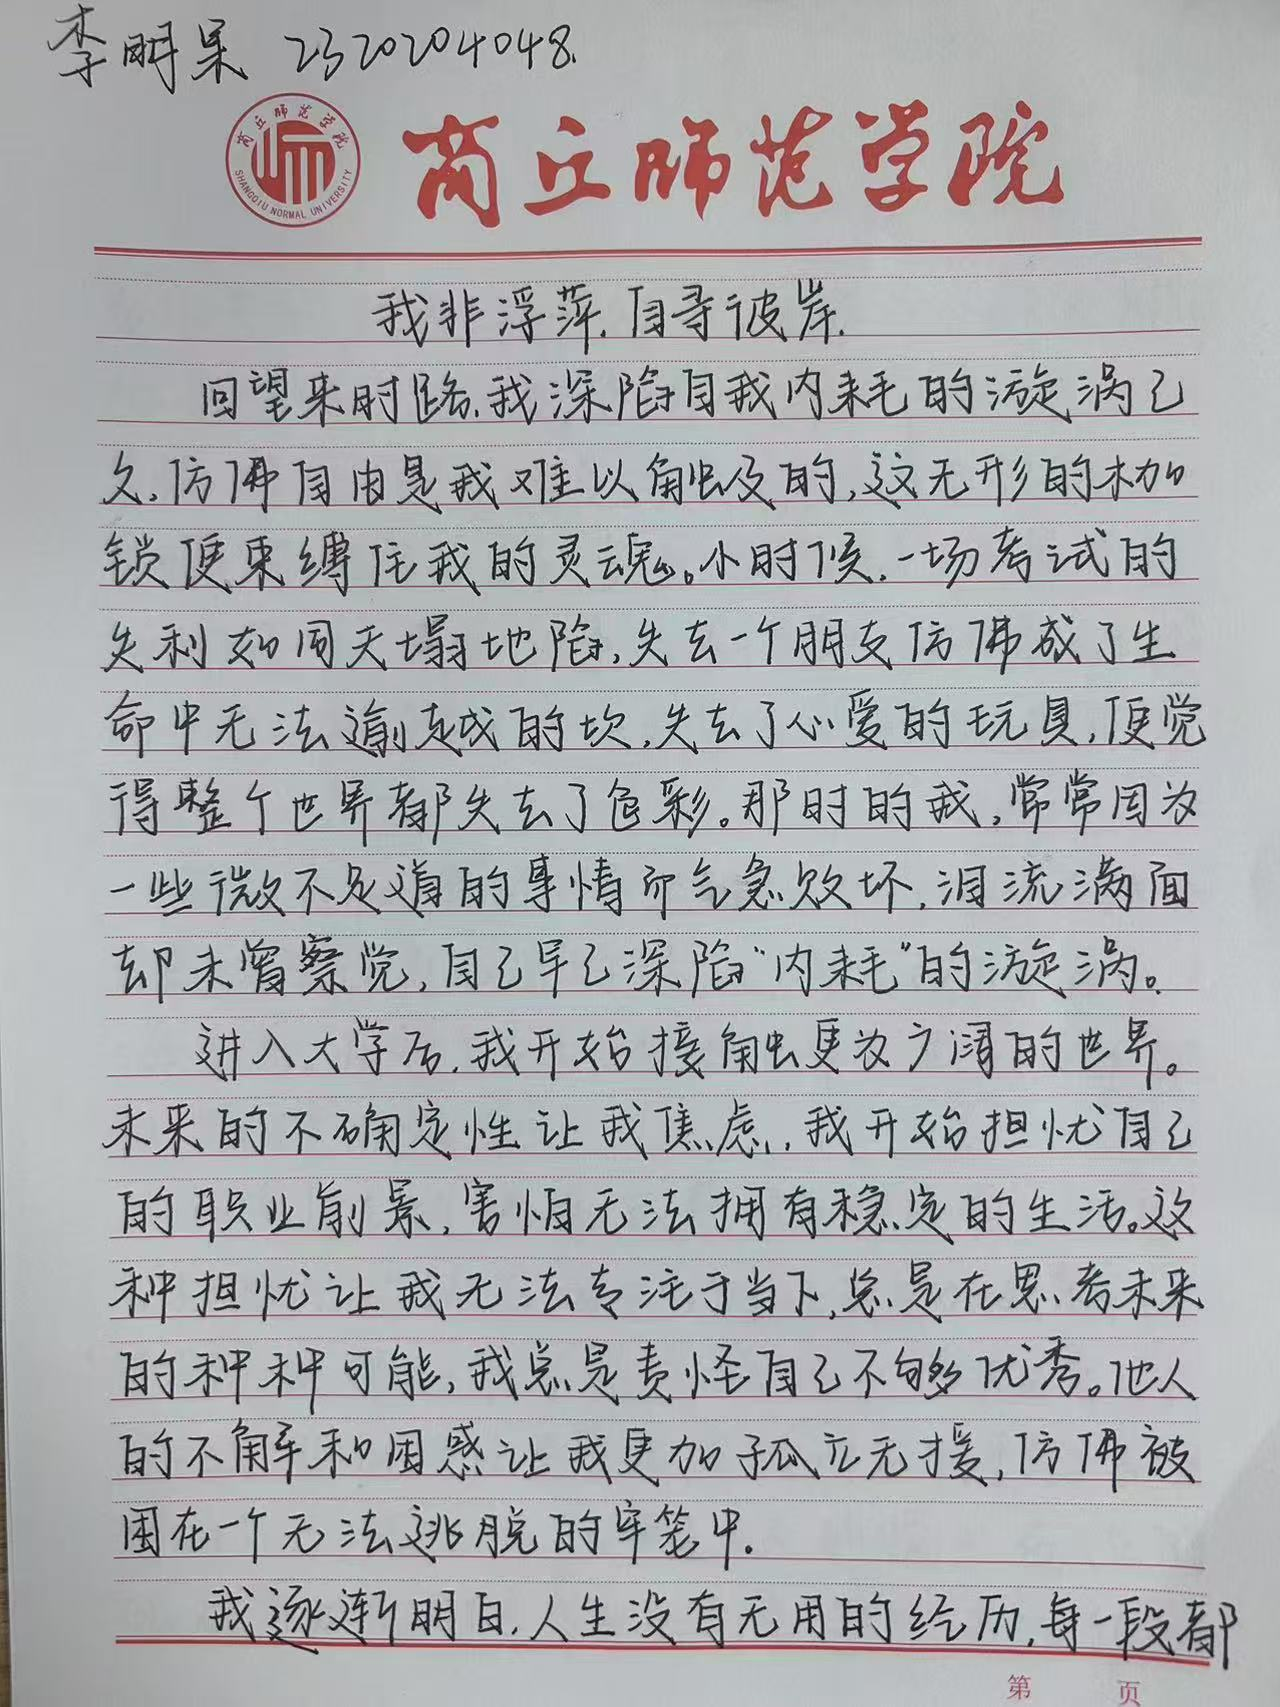 李明杲 2320204048.
商丘师范学院
SHANGQIU NORMAL UNIVERSITY
商丘师范学院
我非浮萍,自寻彼岸.
回望来时路,我深陷自我内耗的漩涡已
久,仿佛自由是我难以触及的,这无形的枷
锁便束缚住我的灵魂。小时候,一场考试的
失利如同天塌地陷,失去一个朋友仿佛成了生
命中无法逾越的坎,失去了心爱的玩具,便觉
得整个世界都失去了色彩。那时的我,常常因为
一些微不足道的事情而气急败坏,泪流满面
却未曾察觉,自己早已深陷“内耗”的漩涡。
进入大学后,我开始接触更为广阔的世界。
未来的不确定性让我焦虑,我开始担忧自己
的职业前景,害怕无法拥有稳定的生活。这
种担忧让我无法专注于当下,总是在思考未来
的种种可能,我总是责怪自己不够优秀。他人
的不解和困惑让我更加孤立无援,仿佛被
困在一个无法逃脱的牢笼中.
我逐渐明白,人生没有无用的经历,每一段都
第 页